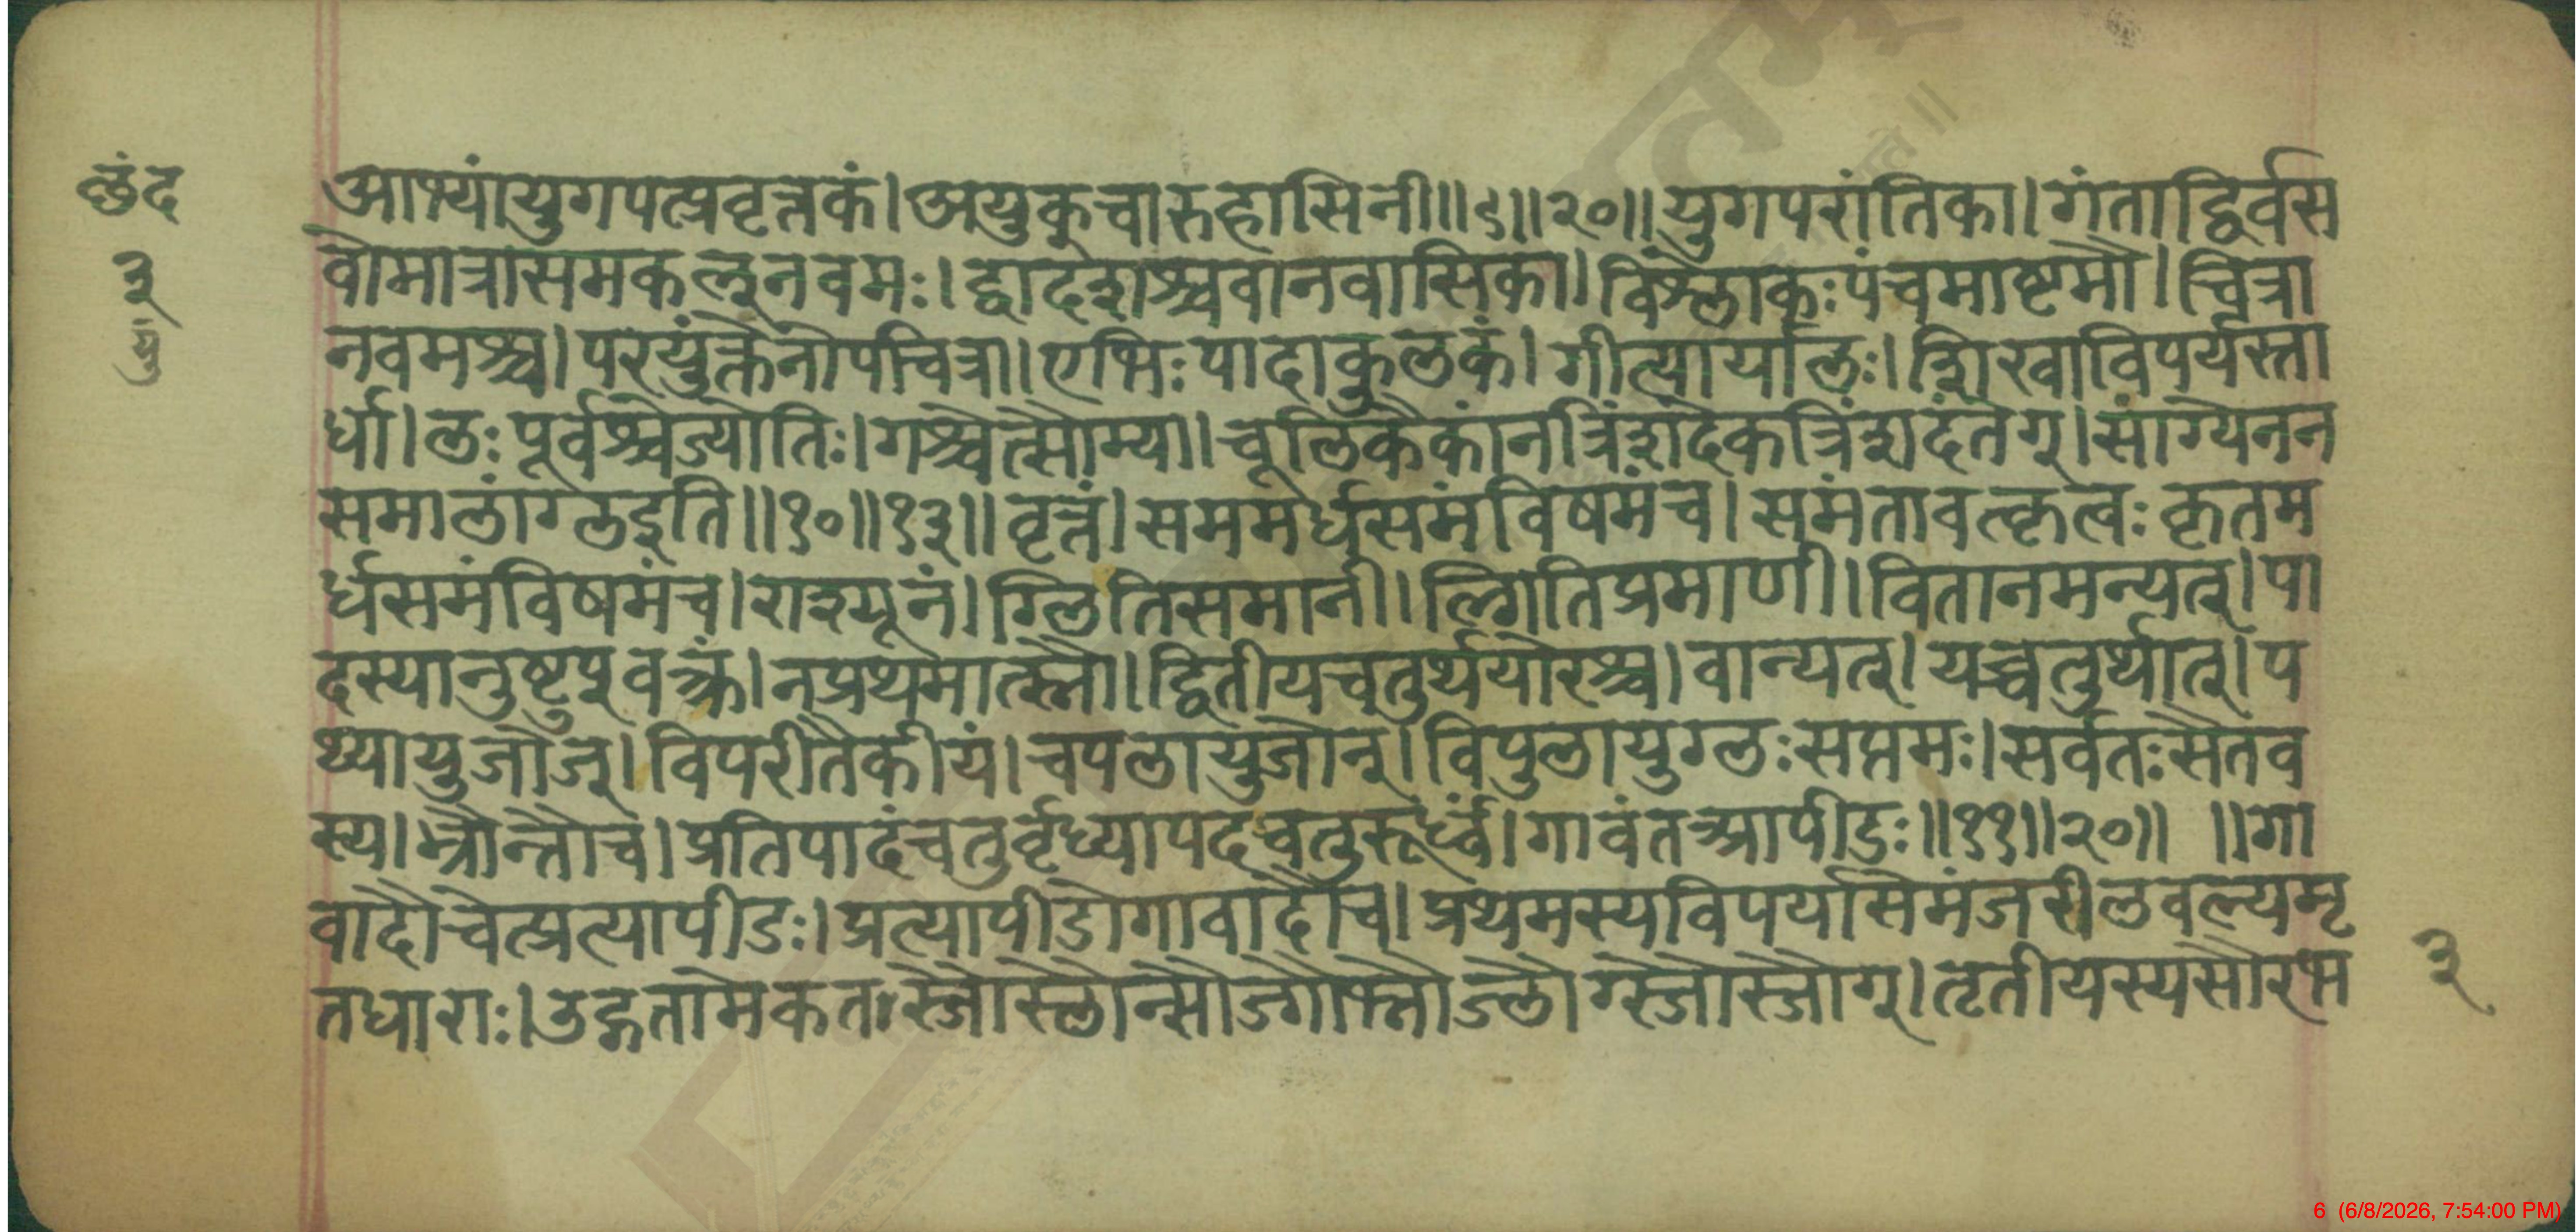 छंद
३
आभ्यांयुगपत्प्रवृत्तकं।अयुक्चारुहासिनी॥९॥२०॥युगपरांतिका।गंताद्विर्वस
वोमात्रासमकंल्नवमः।द्वादशश्चवानवासिका।विश्लोकःपंचमाष्टमौ।चित्रा
नवमश्च।परयुक्तेनोपचित्रा।एभिःपादाकुलकं।गीत्यार्यालः।शिखाविपर्यस्ता
र्धा।लःपूर्वश्चेज्योतिः।गश्चेत्सौम्या।चूलिकैकोनत्रिंशदेकत्रिंशदंतेग्।साग्येनन
समालांग्लइति॥१०॥१३॥वृत्तं।सममर्धसमंविषमंच।समंतावत्कृत्वःकृतम
र्धसमंविषमंच।राश्यूनं।ग्लितिसमानी।ल्गितिप्रमाणी।वितानमन्यत्।पा
दस्यानुष्टुप्वक्त्रं।नप्रथमात्स्नौ।द्वितीयचतुर्थयोरश्च।वान्यत्।यच्चतुर्थात्।प
थ्यायुजोज्।विपरीतैकीयं।चपलायुजोन्।विपुलायुग्लःसप्तमः।सर्वतःसैतव
स्य।भ्रौन्तौच।प्रतिपादंचतुर्वृध्यापदचतुरूर्ध्वं।गावंतआपीडः॥११॥२०॥ ॥गा
वादौचेत्प्रत्यापीडः।प्रत्यापीडोगावादौच।प्रथमस्यविपर्यासेमंजरीलवल्यमृ
तधाराः।उद्गतामेकतःस्जौस्लौन्सौज्गौभ्नौज्लौग्स्जौस्जौग्।तृतीयस्यसौरभ
३
6 (6/8/2026, 7:54:00 PM)